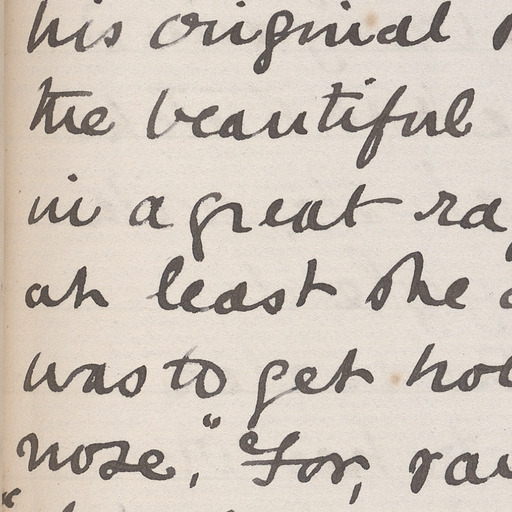 his original
the beautiful
in a great
at least she
was to get
nose," "For,